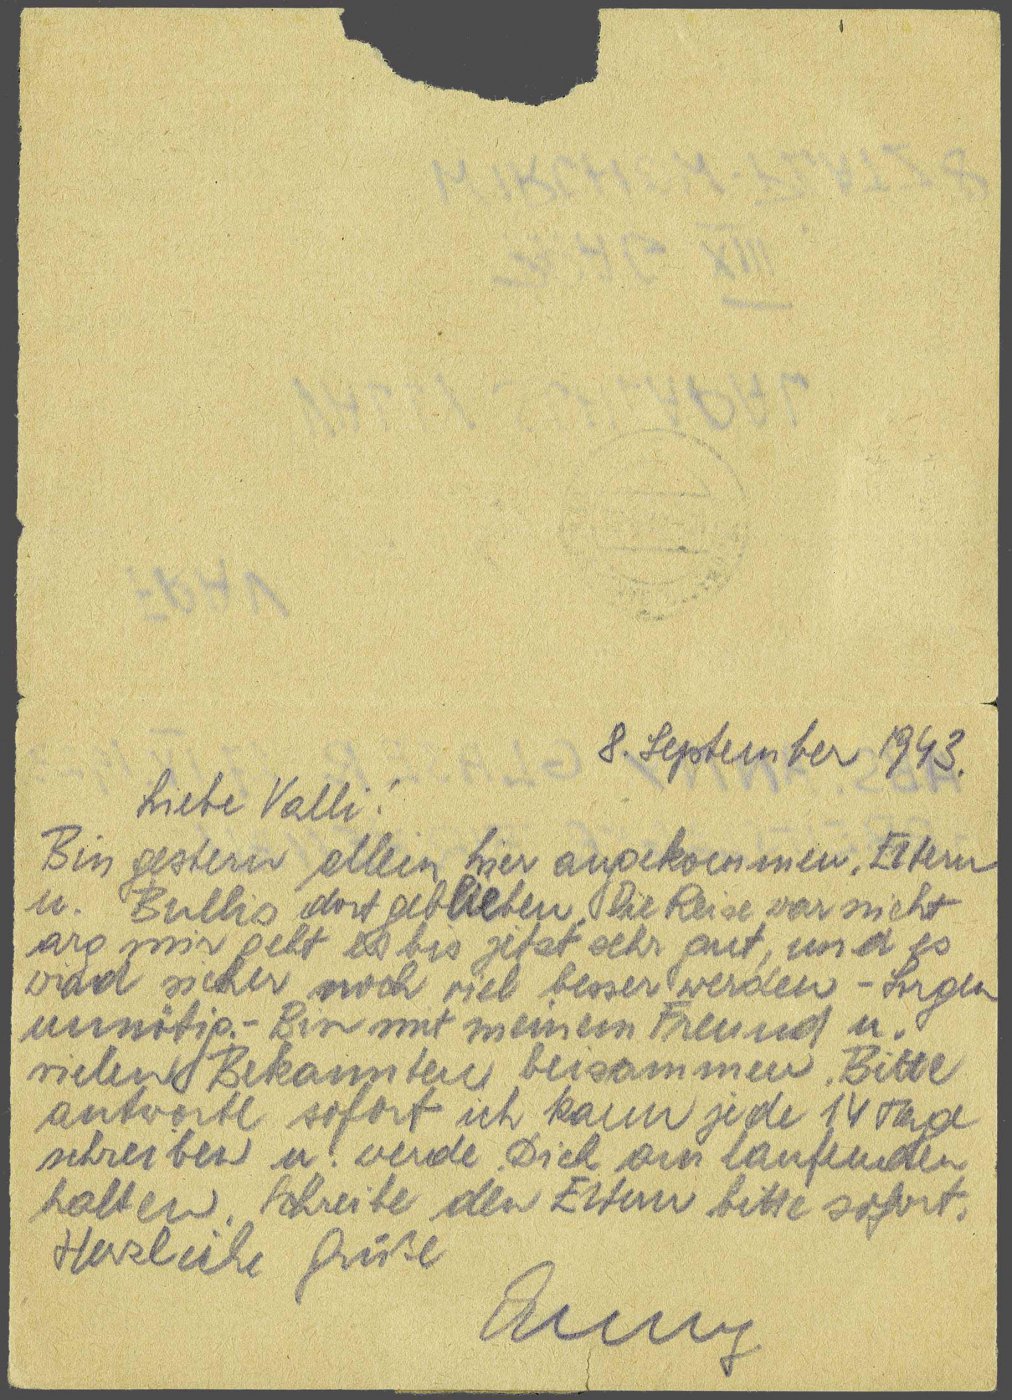 8. September 1943.
Liebe Valli!
Bin gestern allein hier angekommen. Eltern
u. Bullis dort geblieben. Die Reise war nicht
arg mir geht es bis jetzt sehr gut, und es
wird sicher noch viel besser werden – Sorgen
unnötig. – Bin mit meinem Freund u.
vielen Bekannten beisammen. Bitte
antworte sofort ich kann jede 14 Tage
schreiben u. werde Dich am laufenden
halten. Schreibe den Eltern bitte sofort.
Herzliche Grüße
Anny